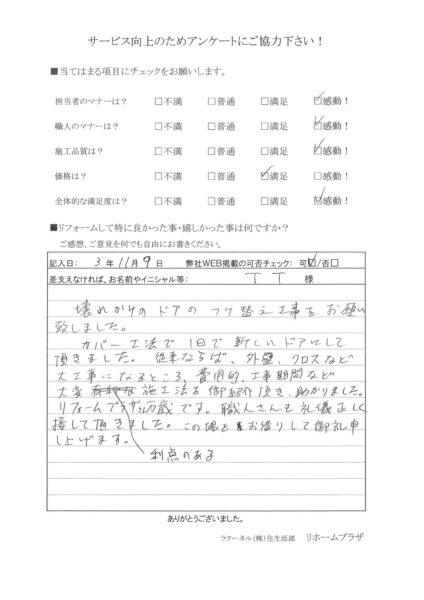 サービス向上のためアンケートにご協力下さい！
■当てはまる項目にチェックをお願いします。
担当者のマナーは？ □不満 □普通 □満足 ☑感動！
職人のマナーは？ □不満 □普通 □満足 ☑感動！
施工品質は？ □不満 □普通 □満足 ☑感動！
価格は？ □不満 □普通 ☑満足 □感動！
全体的な満足度は？ □不満 □普通 □満足 ☑感動！
■リフォームして特に良かった事・嬉しかった事は何ですか？
ご感想、ご意見を何でも自由にお書きください。
記入日： 3年 11月 9日 弊社WEB掲載の可否チェック： 可☑/否□
差支えなければ、お名前やイニシャル等： T T 様
壊れかけの ドアの つけ替え工事を お願い
致しました。
カバー工法で 1日で 新しい ドアにして
頂きました。 従来ならば、外壁、クロスなど
大工事になるところ、費用的、工事期間など
大変 施工法を御紹介頂き、助かりました。
リフォームプラザさん万歳です。 職人さんも礼儀正しく
接して頂きました。 この場をお借りして御礼申
し上げます。
利点のある
ありがとうございました。
ラクーネル（株）住生活部 リホームプラザ